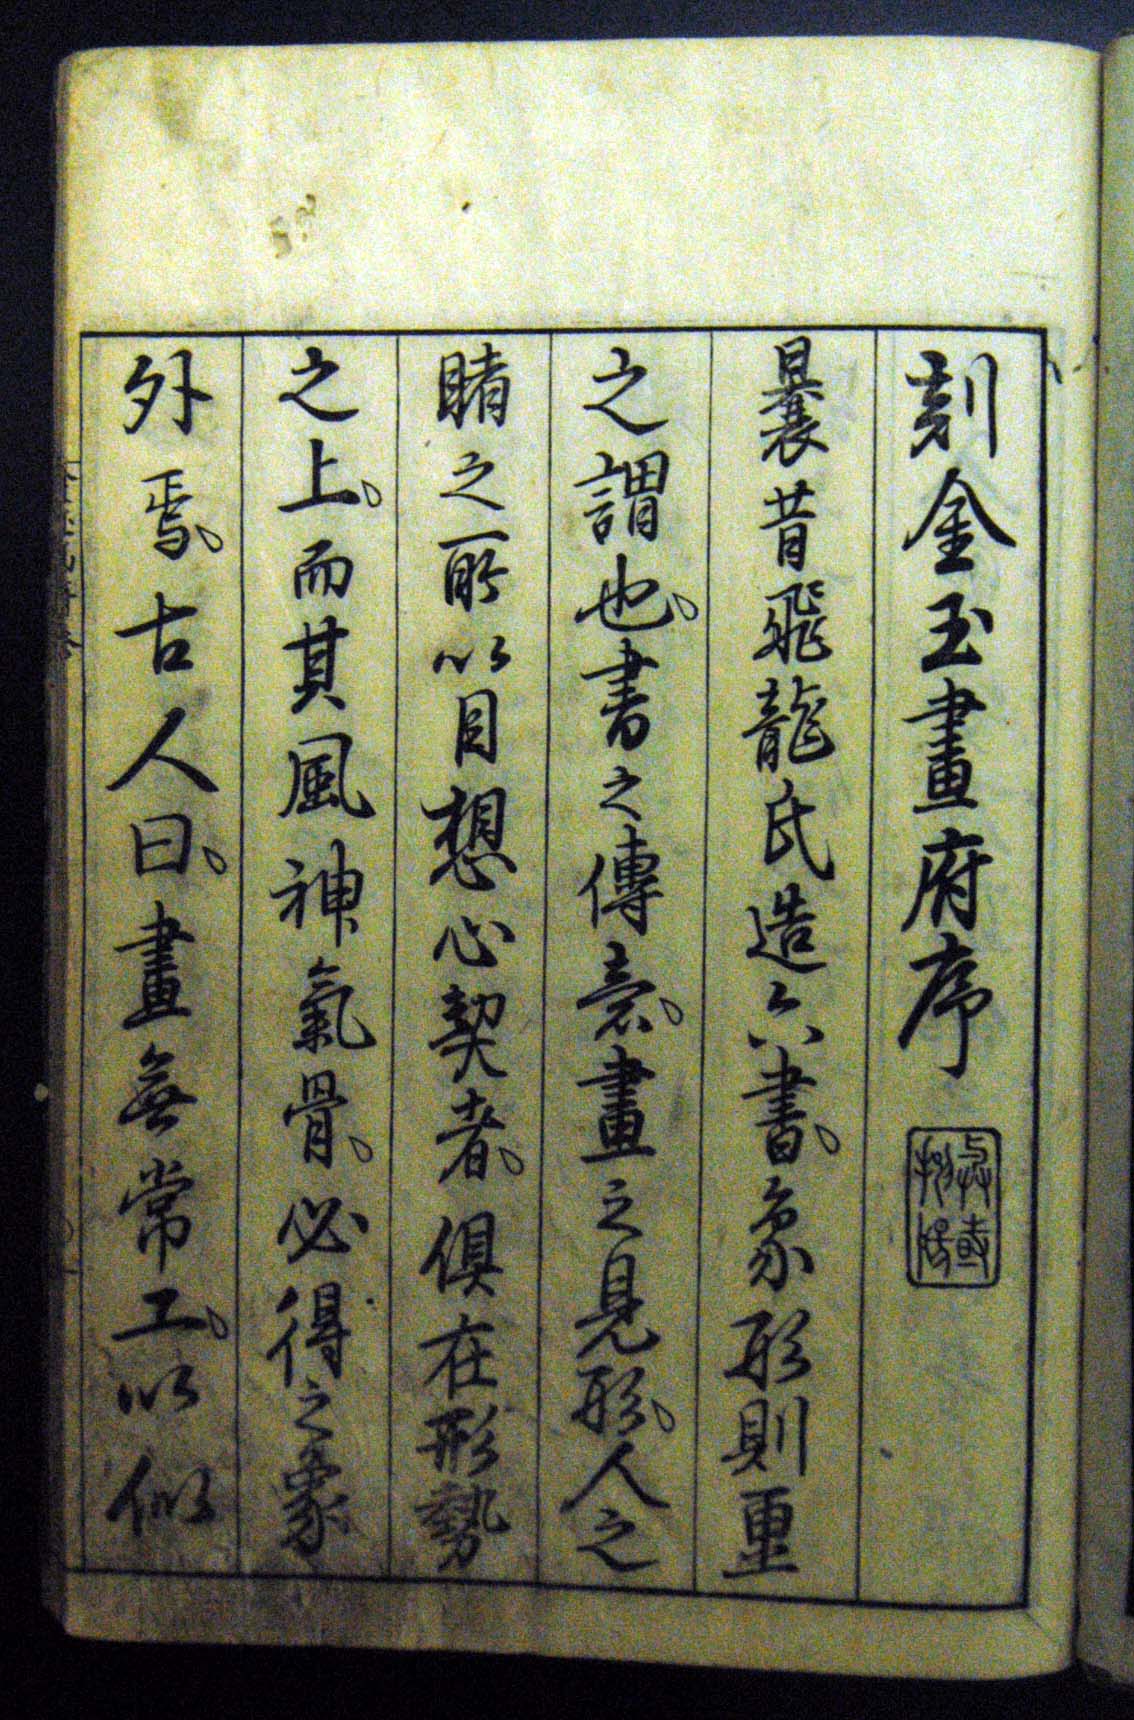 刻金玉畫府序
曩昔飛龍氏造六書、象形則畫
之謂也、書之傳意、畫之見形、人之
睹之所以目想心契者、俱在形勢
之上、而其風神氣骨、必得之象
外焉、古人曰、畫無常工、以似